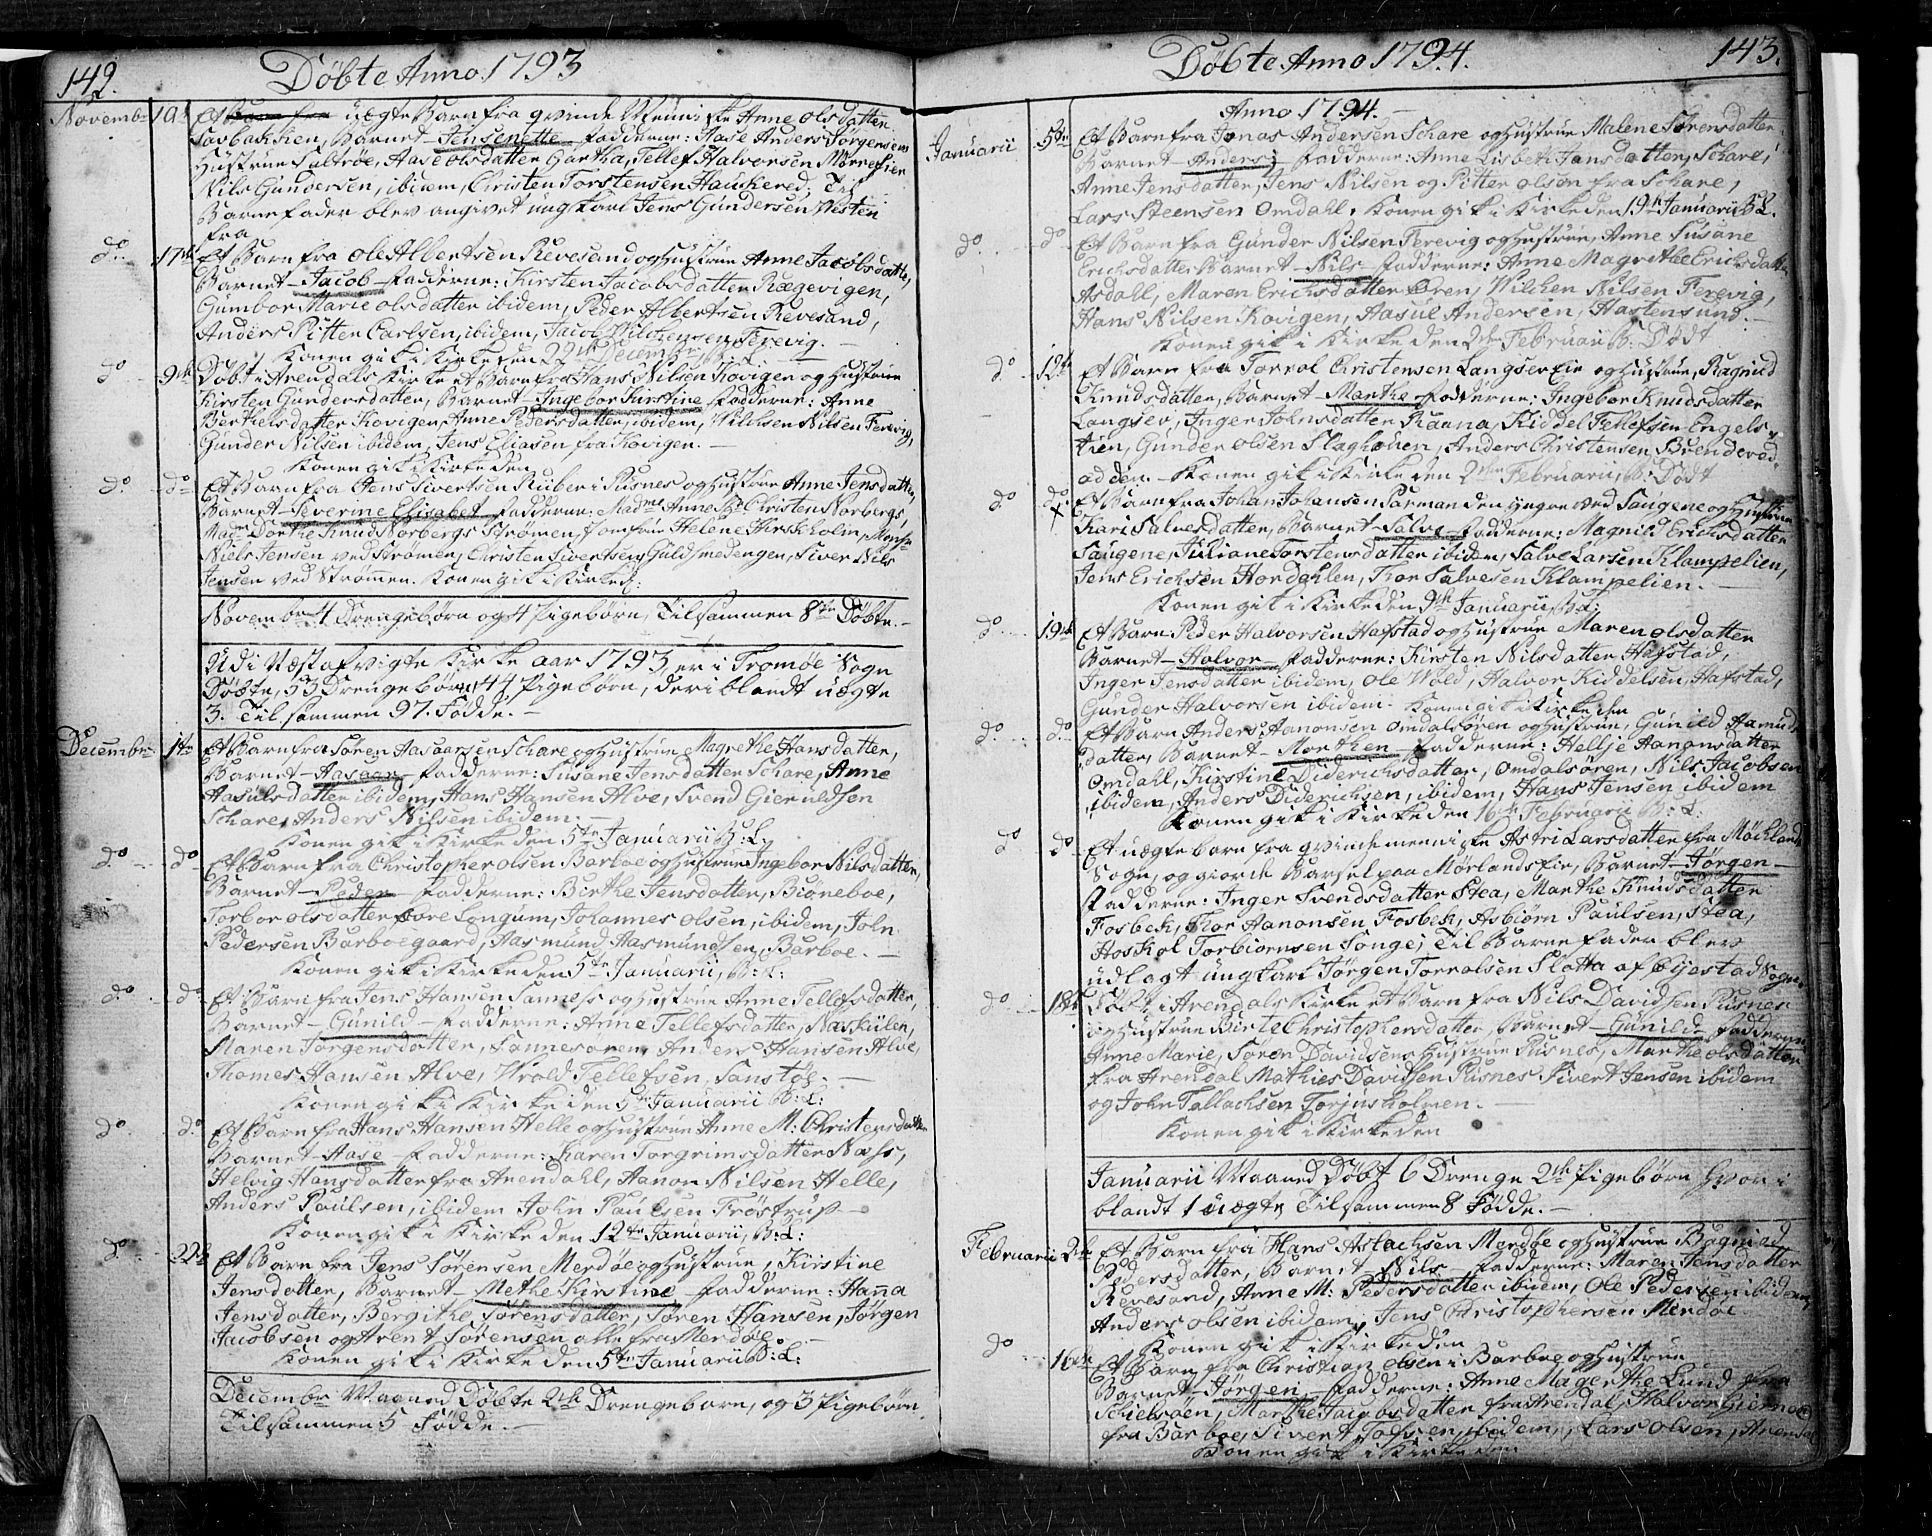 142. Döbte Anno 1793
Novembr 10de Et Barn fra uægte Barn fra qvinde Menniske Anne Olsdatter
Barnet – Jensenette – Fadderne: Aase Anders Jørgensens
Hustrue Saltrøe, Aase Olsdatter Gartha, Tellef Halvorsen
Nils Gundersen, ibidem, Christen Torstensen Hauskered; Til
Barnefader blev angivet ungkarl Jens Gundersen Westen
fra
do 17de Et Barn fra Ole Albertsen Revesand og Hustrue Anne Jacobsdatter,
Barnet – Jacob – Fadderne: Kirsten Jacobsdatter Rægevigen,
Gumbor Marie Olsdatter ibidem, Peder Albertsen Revesand,
Anders Pitter Carlsen, ibidem, Jacob Wilchensen, Ferevig. –
Konen gik i Kirke den 22de Decembr,
do 9de Döbt i Arendals Kirke et Barn fra Hans Nilsen Kovigen og Hustrue
Kirsten Gundersdatter, Barnet – Ingebor Kirstine Fadderne: Anne
Berthelsdatter Kovigen, Anne Pedersdatter, ibidem, Wilchen Nilsen Ferevig,
Gunder Nilsen ibidem, Jens Eliasen fra Kovigen. –
Konen gik i Kirke den
do do Et Barn fra Jens Sivertsen Ruber i Pusnes og Hustrue Anne Jensdatter,
Barnet – Severine Elisabet Fadderne: Madme Anne Christen Norbergs,
Mad: Dorthe Knud Norbergs Strømen, Jomfrue Helene Hirschholm, Monsr
Niels Jensen ved Strømen, Christen Sivertsen, Guldsmedengen, Siver Nils
Jensen ved Strømmen. Konen gik i Kirke d:
Novembr 4 Drengebørn og 4 Pigebørn, Tilsammen 8te Döbte. –
Udi Næst afvigte Kirke aar 1793 er i Tromöe Sogn
Döbte, 53 Drengebörn, 44 Pigebörn, deriblandt uægte
3. Tilsammen 97. Födde. –
Decembr 1te Et Barn fra Søren Aasaarsen Schare og Hustrue Magrethe Hansdatter,
Barnet – Aasaar – Fadderne: Susane Jensdatter Schare, Anne
Aasulsdatter ibidem, Hans Hansen Alve, Svend Gieruldsen
Schare, Anders Nilsen ibidem. –
Konen gik i Kirke den 5te Januarii B: L.
do do Et Barn fra Christopher Olsen Barboe og Hustrue Ingebor Nilsdatter,
Barnet – Peder – Fadderne: Birthe Jensdatter, Biørneboe,
Torbor Olsdatter, Fore Longum, Johannes Olsen, ibidem, John
Pedersen Barboegaard, Aasmund Aasmundsen, Barboe. –
Konen gik i Kirke den 5te Januarii, B: L:
do do Et Barn fra Jens Hansen Sanness og Hustrue Anne Tellefsdatter,
Barnet – Gunild – Fadderne: Anne Tellefsdatter, Naskilen,
Maren Jørgensdatter, Sannesøren, Anders Hansen Alve,
Thomes Hansen Alve, Wrold Tellefsen, Sanstøe. –
Konen gik i Kirke den 5te Januarii B: L:
do do Et Barn fra Hans Hansen Helle og Hustrue Anne M: Christensdatter
Barnet – Aase – Fadderne: Karen Torgrimsdatter Næss,
Helvig Hansdatter fra Arendahl, Aanon Nilsen Helle,
Anders Paulsen, ibidem John Paulsen Tröstrup –
Konen gik i Kirke den 12te Januarii, B: L:
do 22de Et Barn fra Jens Sörensen Merdöe og Hustrue, Kirstine
Jensdatter, Barnet – Methe Kirstine – Fadderne: Hanna
Jensdatter, Bergithe Sörensdatter, Sören Hansen, Jörgen
Jacobsen og Arent Sörensen alle fra Merdöe. –
Konen gik i Kirke den 5te Januarii B: L:
Decembr Maaned Döbte 2de Drengebørn, og 3 Pigebørn
Tilsammen 5 Födde. –
Döbte Anno 1794. 143.
Anno 1794. –
Januarii 5te Et Barn fra Jonas Andersen Schare og Hustrue Malene Sørensdatter
Barnet – Anders; Fadderne: Anne Lisbeth Jansdatter, Schare,
Anne Jensdatter, Jens Nilsen og Pitter Olsen fra Schare,
Lars Steensen Omdahl. Konen gik i Kirke den 19de Januarii B: L.
do do Et Barn fra Gunder Nilsen Ferevig og Hustrue, Anne Susane
Erichsdatter Barnet – Nils – Fadderne: Anne Magrethe Erichsdatter
Asdahl, Maren Erichsdatter Øren, Wilchen Nilsen Ferevig,
Hans Nilsen Kovigen, Aasul Andersen, Hastensund. –
Konen gik i Kirke den 2den Februari B: Dödt
do 12te Et Barn fra Torrol Christensen Langsev Eie og Hustrue, Ragnild
Knudsdatter, Barnet – Marthe – Fadderne: Ingebor Knudsdatter
Langsev, Inger Johnsdatter Ranna, Kiddel Tellefsen Engels-
tien, Gunder Olsen Flaghouen, Anders Christensen, Brenderød-
odden. – Konen gik i Kirke den 2den Februarii, B: Dödt
do do Et Barn fra Johan Johansen Parman den yngre ved Saugene og Hustrue
Kari Salvesdatter, Barnet – Salve – Fadderne: Magnild Erichsdatter
Saugene, Juliane Torstensdatter ibidem, Salve Larsen Klampelien,
Jens Erichsen Hordahlen, Thor Salvesen Klampelien. –
Konen gik i Kirke den 9de Januarii, B: L:
do 19de Et Barn Peder Halvorsen Hafstad og Hustrue Maren Olsdatter
Barnet – Halvor – Fadderne: Kirsten Nilsdatter Hafstad,
Inger Jensdatter ibidem, Ole Wold, Halvor Kiddelsen, Hafstad,
Gunder Halvorsen ibidem. Konen gik i Kirke den
do do Et Barn Anders Aanonsen Omdalsören og Hustrue, Gunild Aamunds-
datter, Barnet – Morthen – Fadderne: Hellje Aanonsdatter
Omdahl, Kirstine Diderichsdatter, Omdalsøren, Nils Jacobsen
ibidem, Anders Diderichsen, ibidem, Hans Jensen ibidem
Konen gik i Kirke den 16de Februarii B: L:
do do Et uægte barn fra qvindemenniske Astri Larsdatter fra Möchland
Sogn, og giorde Barsel paa Mörlands Eie, Barnet – Jörgen –
Fadderne: Inger Svendsdatter Stea, Marthe Knudsdatter
Fosbek, Thor Aanonsen Fosbek, Asbiørn Paulsen, Stea,
Hoskol Torbiörnsen Songe; Til Barnefader blev
udlagt ungkarl Jörgen Torrolsen Slotta af Öyestad Sogn.
do 18de Döbt i Arendals Kirke et Barn fra Nils Davidsen Pusnes
og Hustrue Birte Christophersdatter, Barnet – Gunild – Fadderne
Anne Marie, Søren Davidsens Hustrue Pusnes, Marthe Olsdatter
fra Arendal Mathies Davidsen Pusnes Sivert Jensen ibidem
og John Tallachsen Torjusholmen. –
Konen gik i Kirke den
Januarii Maaned Döbt 6 Drenge 2de Pigebörn hvor i
blandt 1 uægte, Tilsammen 8 Födde. –
Februarii 2de Et Barn fra Hans Aslachsen Merdöe og Hustrue Bognild
Pedersdatter, Barnet – Nils – Fadderne: Maren Jensdatter
Revesand, Anne M: Pedersdatter ibidem, Ole Pedersen ibidem,
Anders Olsen ibidem, Jens Christophersen Merdöe
Konen gik i Kirke den
do 16de Et Barn fra Christian Olsen i Barboe og Hustrue
Barnet – Jörgen – Fadderne: Anne Magrethe Lund fra
Schielsøen, Marthe Jacobsdatter fra Arendal, Halvor
fra Barboe, Sivert ibidem, Lars Olsen, Arendal
Konen gik i Kirke den